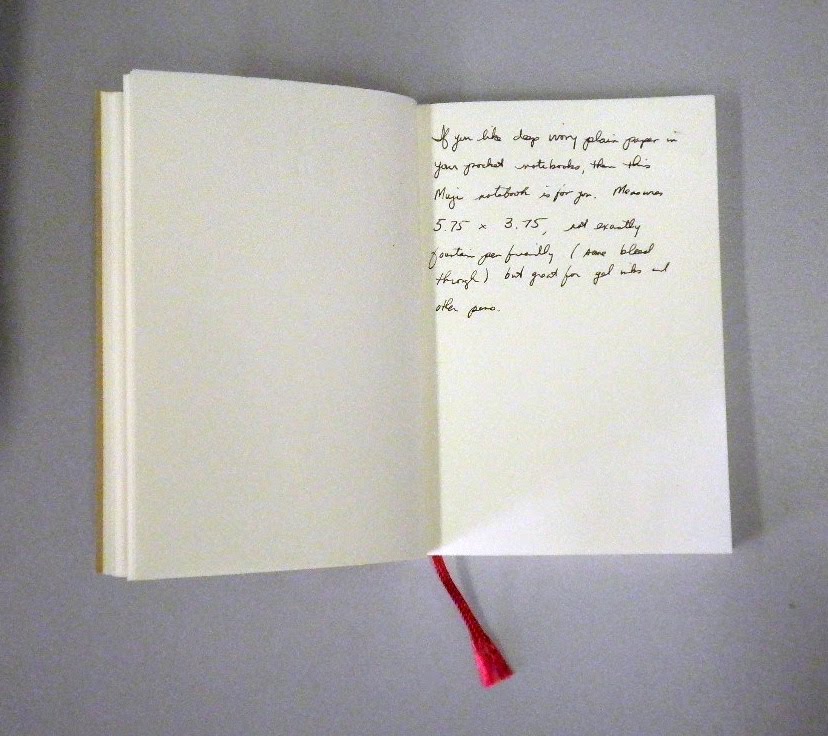 If you like deep ivory plain paper in
your pocket notebooks, then this
Muji notebook is for you. Measures
5.75 x 3.75, not exactly
fountain pen friendly (some bleed
through) but great for gel inks and
other pens.